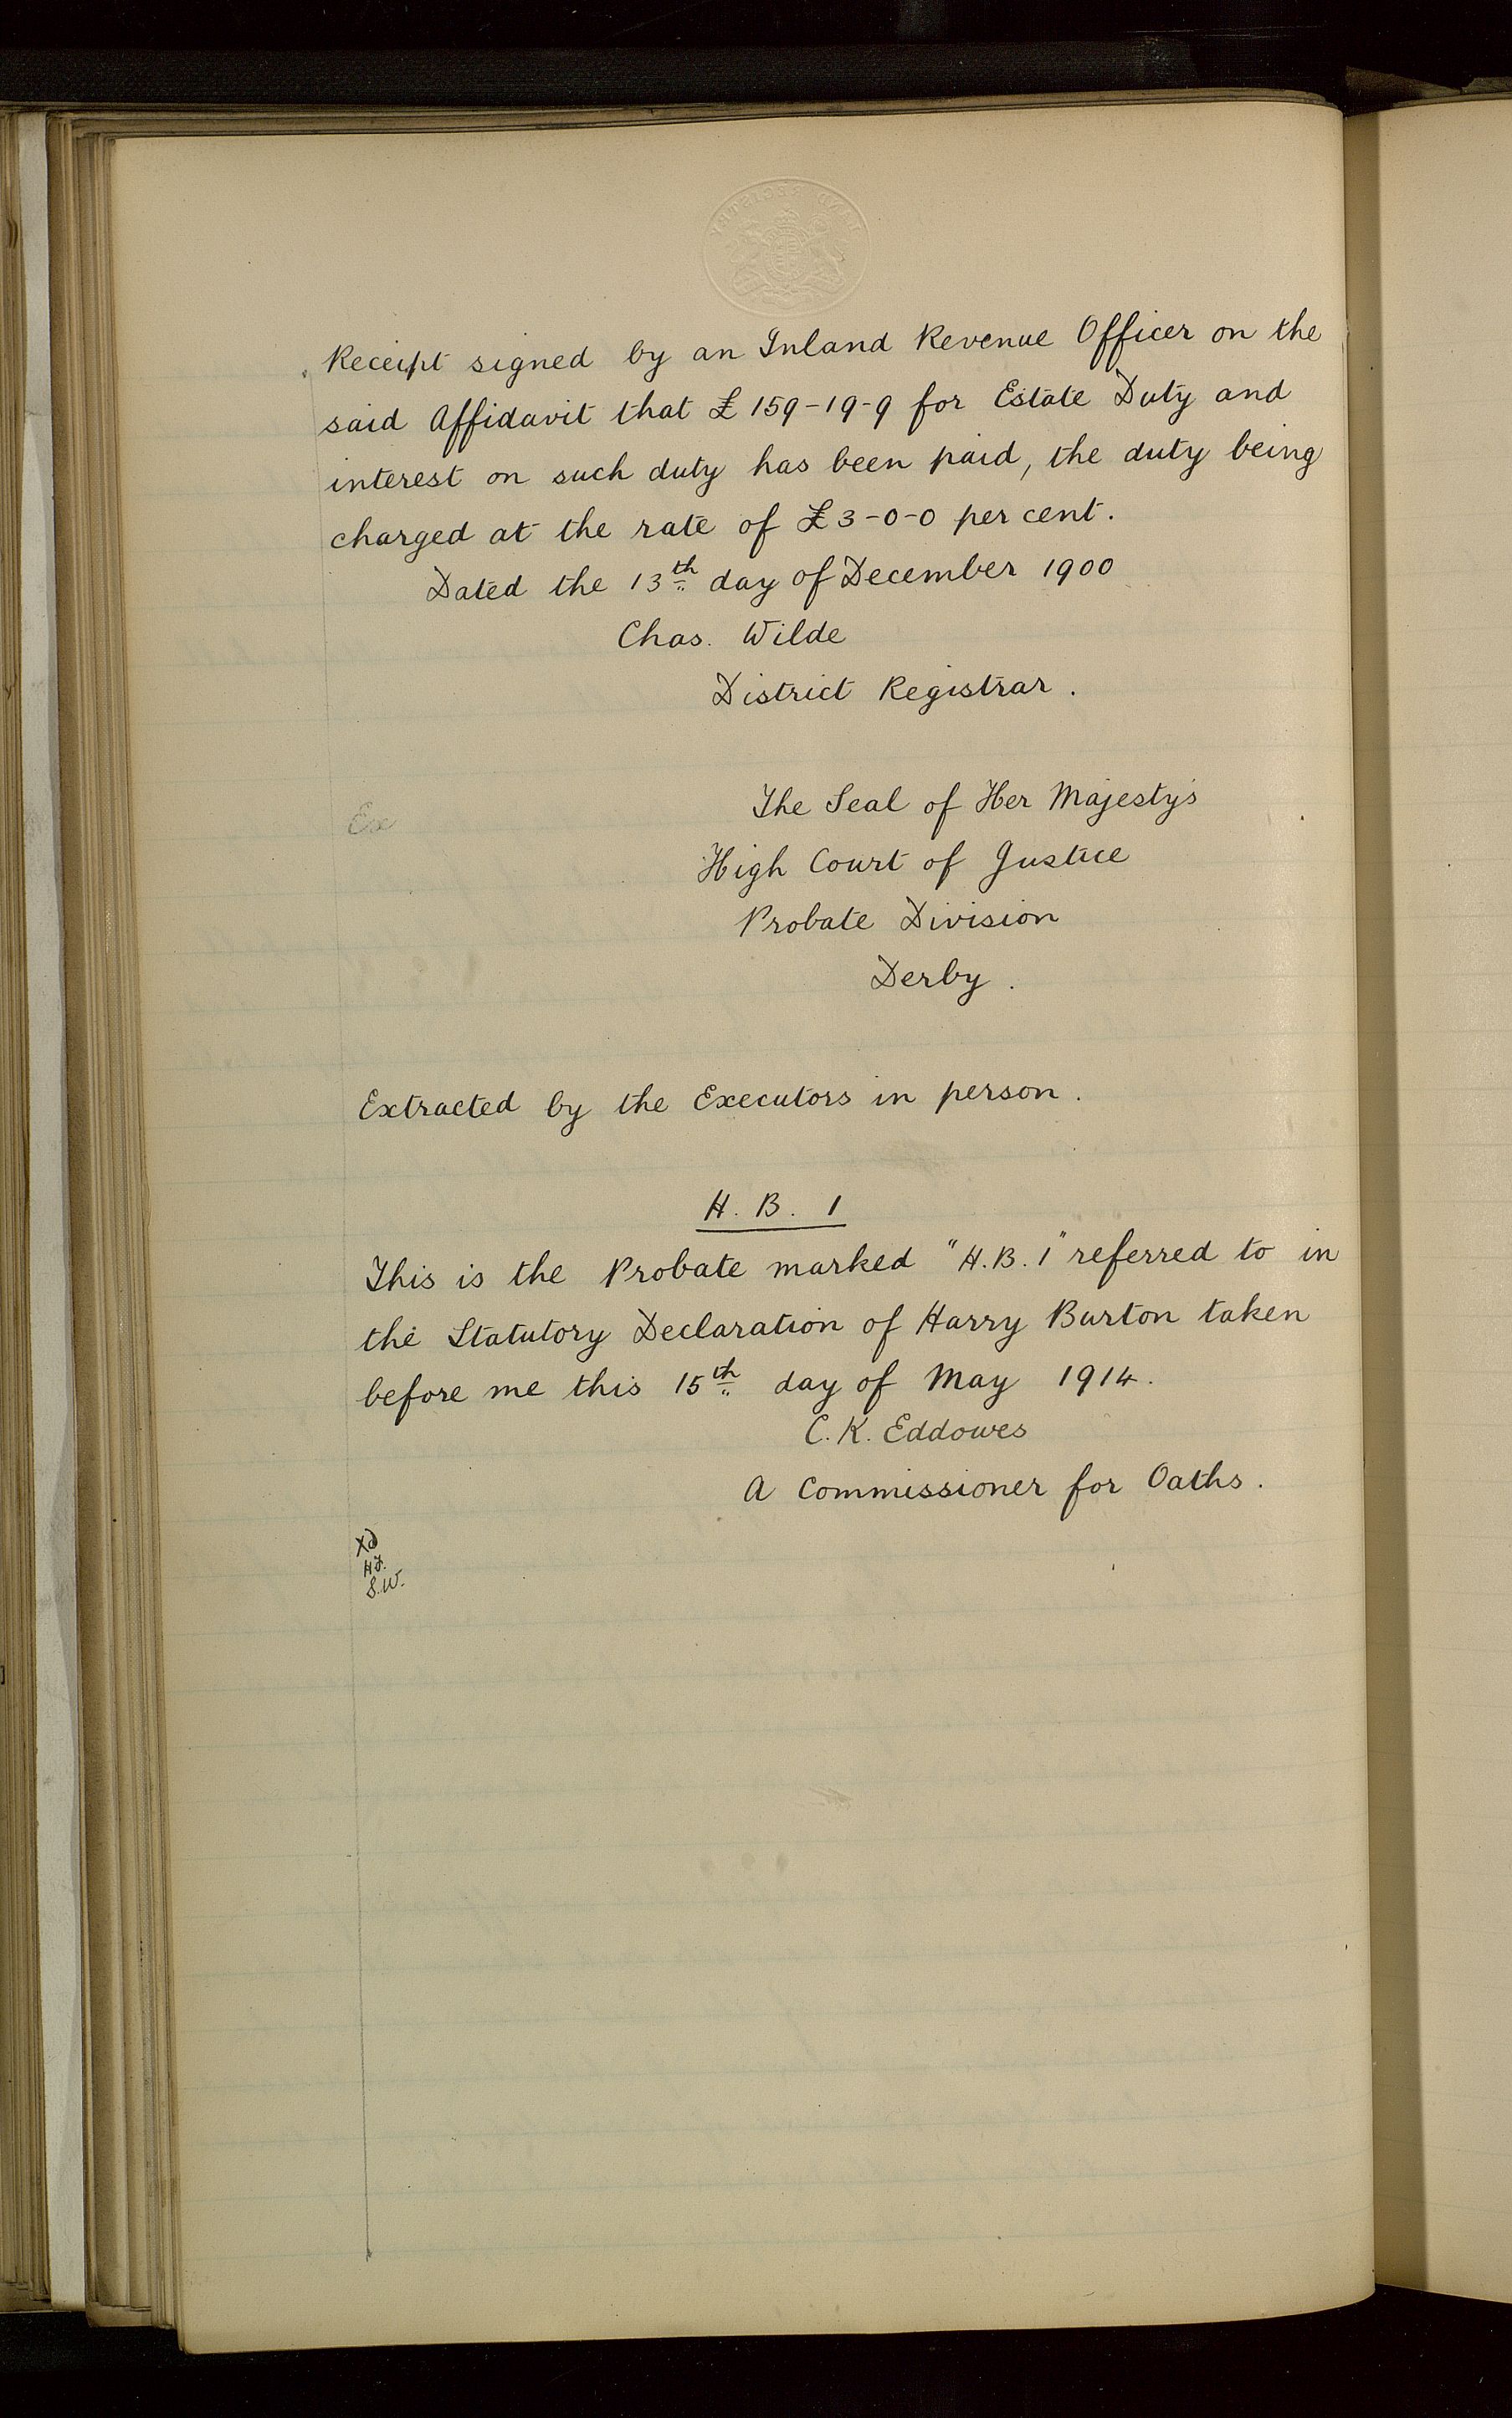 Receipt signed by an Inland Revenue Officer on the
said Affidavit that £159-19-9 for Estate Duty and
interest on such duty has been paid, the duty being
charged at the rate of £3-0-0 per cent.
Dated the 13th day of December 1900
Chas. Wilde
District Registrar.
The Seal of Her Majesty's
Ex
High Court of Justice
Probate Division
Derby.
Extracted by the Executors in person.
H. B. 1
This is the Probate marked "H.B.1" referred to in
the Statutory Declaration of Harry Burton taken
before me this 15th day of May 1914.
C. K. Eddowes
A Commissioner for Oaths.
Xd
S.W.